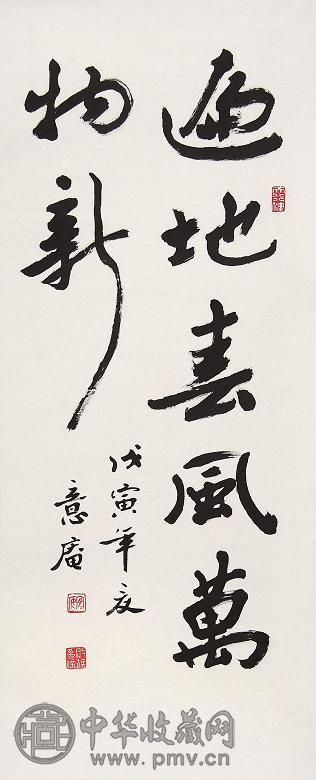 遍地春風萬
物新
戊寅年夏
意庵
中华收藏网
www.pmv.cn